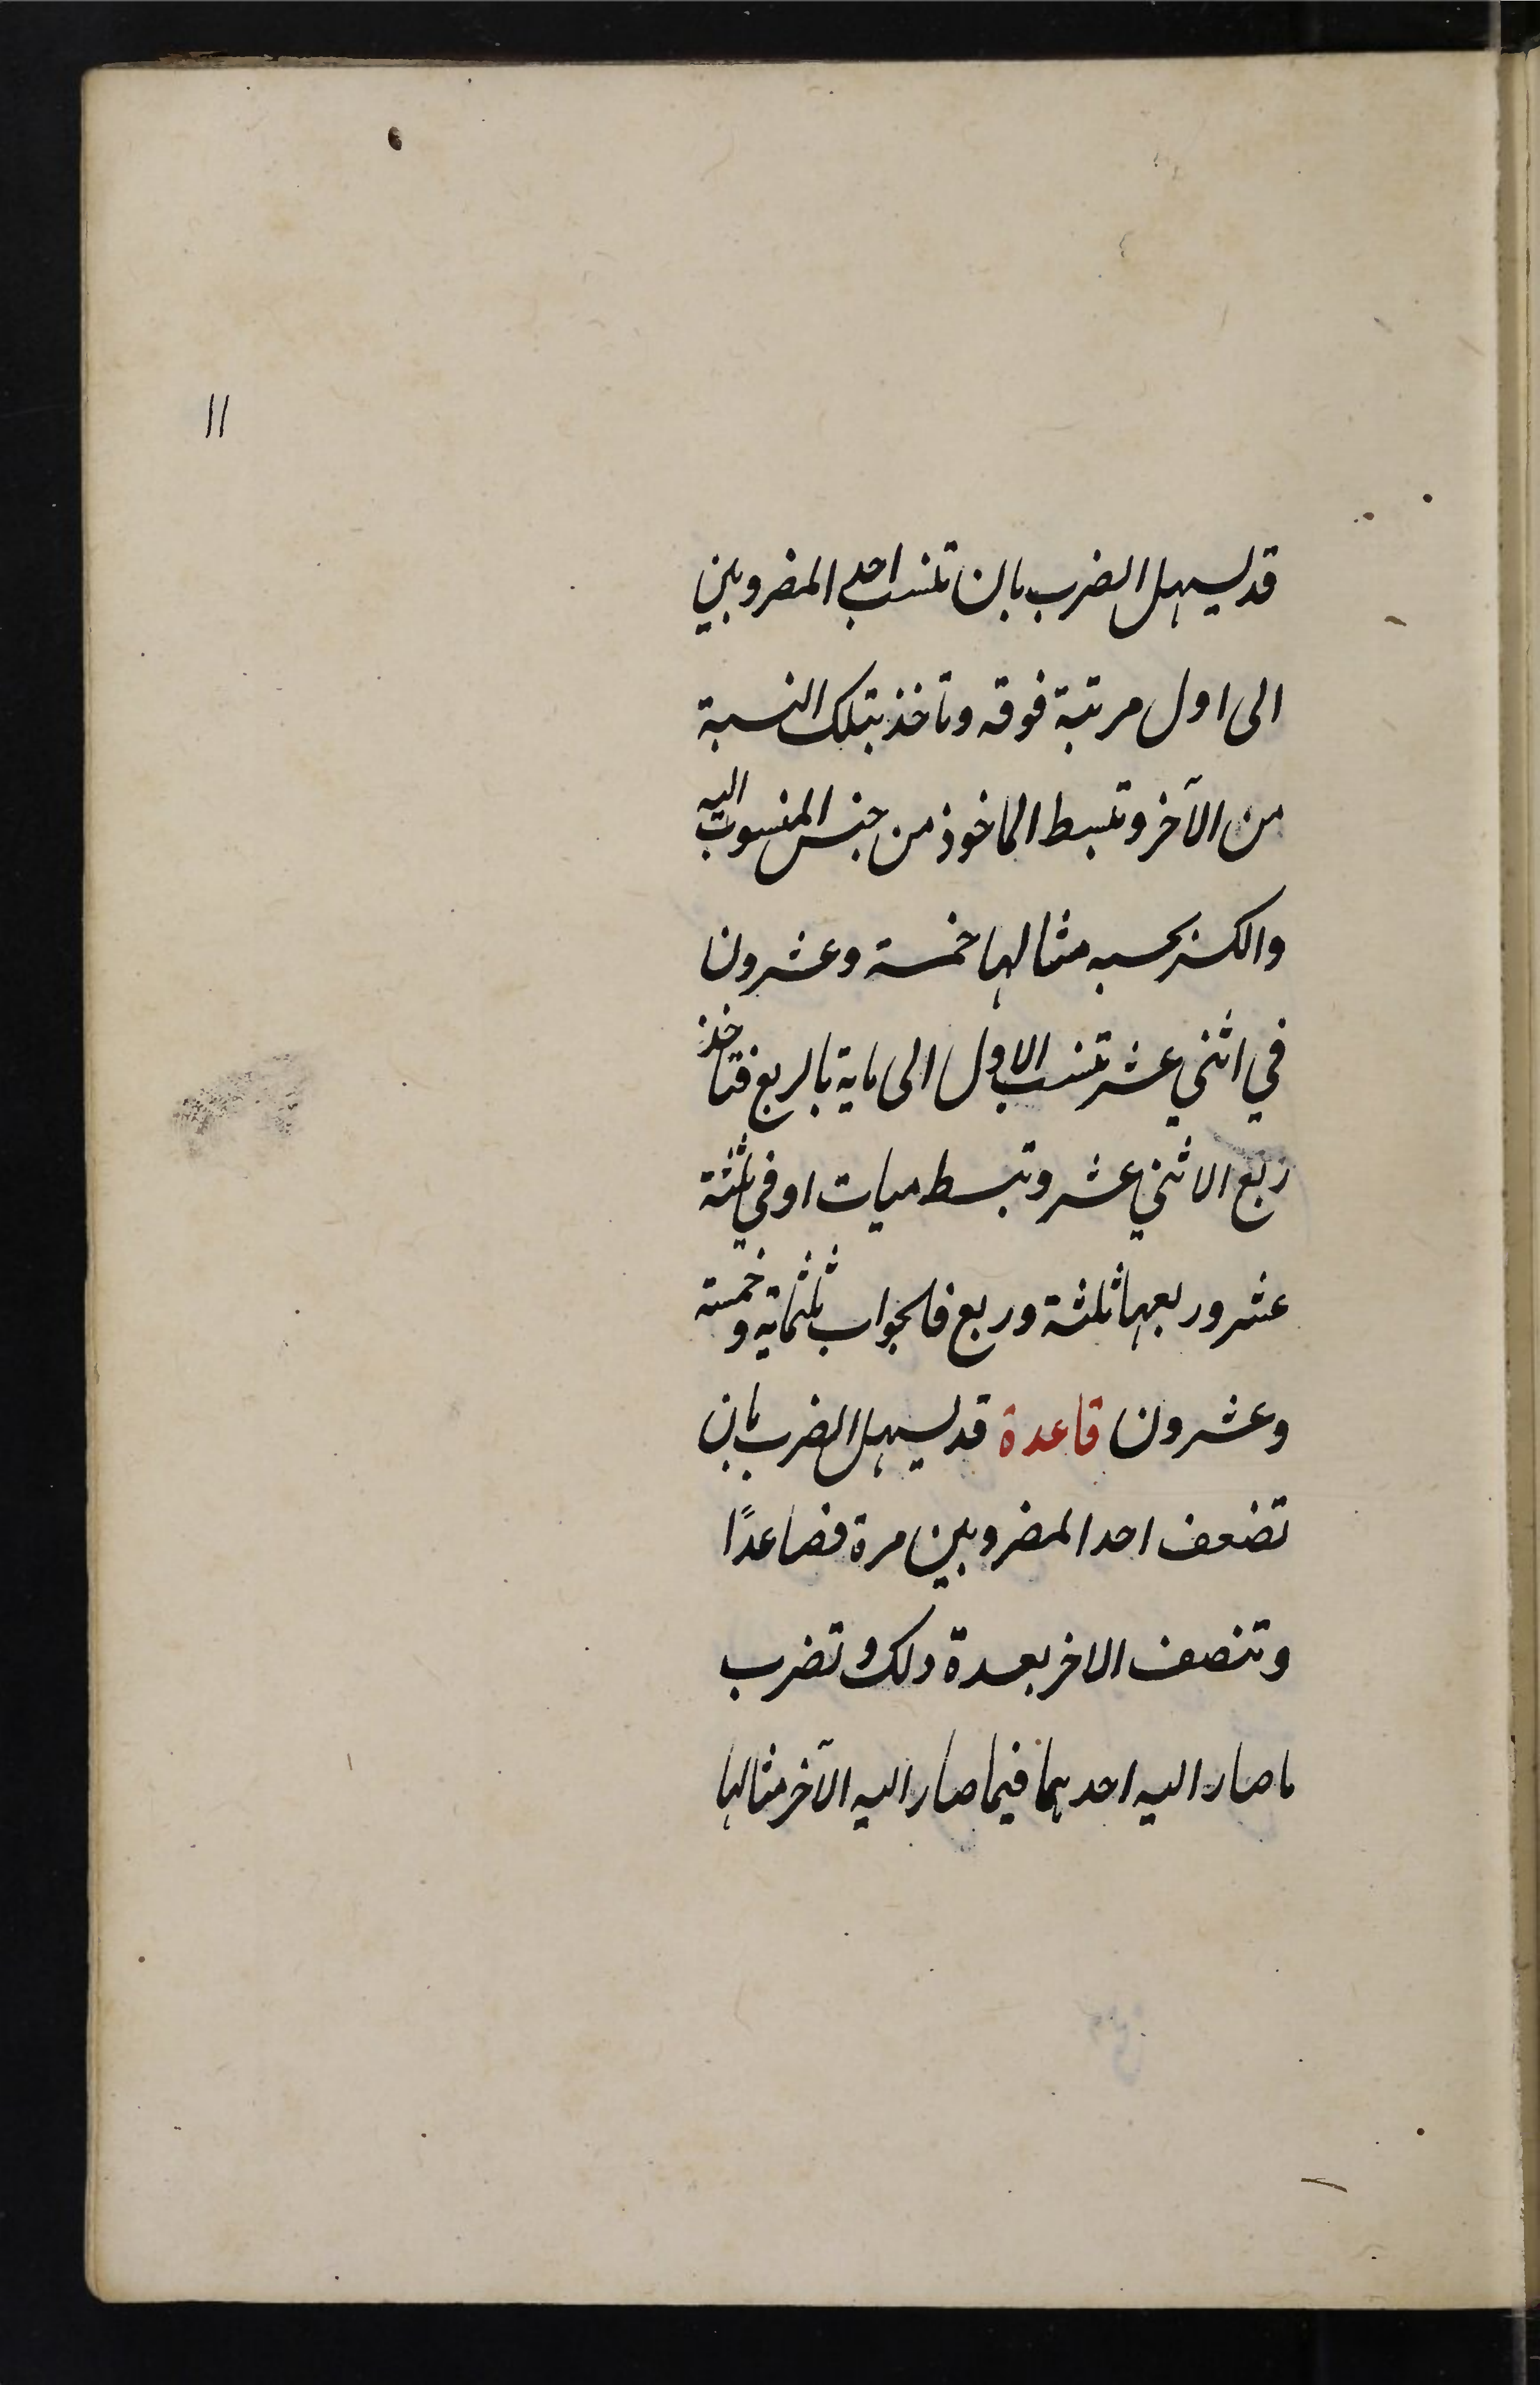 ١١
قد يسهل الضرب بان تنسب احد المضروبين
الى اول مرتبة فوقه وتاخذ بتلك النسبة
من الآخر وتبسط الماخوذ من جنس المنسوب اليه
والكسر بحسبه مثالها خمسة وعشرون
في اثني عشر تنسب الاول الى ماية بالربع فتاخذ
ربع الاثني عشر وتبسط ميات او في ثلثة
عشر وربعها ثلثة وربع فالجواب ثلثماية وخمسة
وعشرون قاعدة قد يسهل الضرب بان
تضعف احد المضروبين مرة فصاعدًا
وتنصف الاخر بعدة ذلك وتضرب
ما صار اليه احدهما فيما صار اليه الآخر مثالها